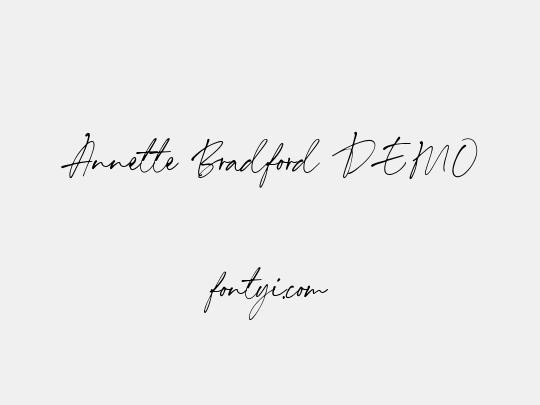 Annette Bradford DEMO
fontyi.com